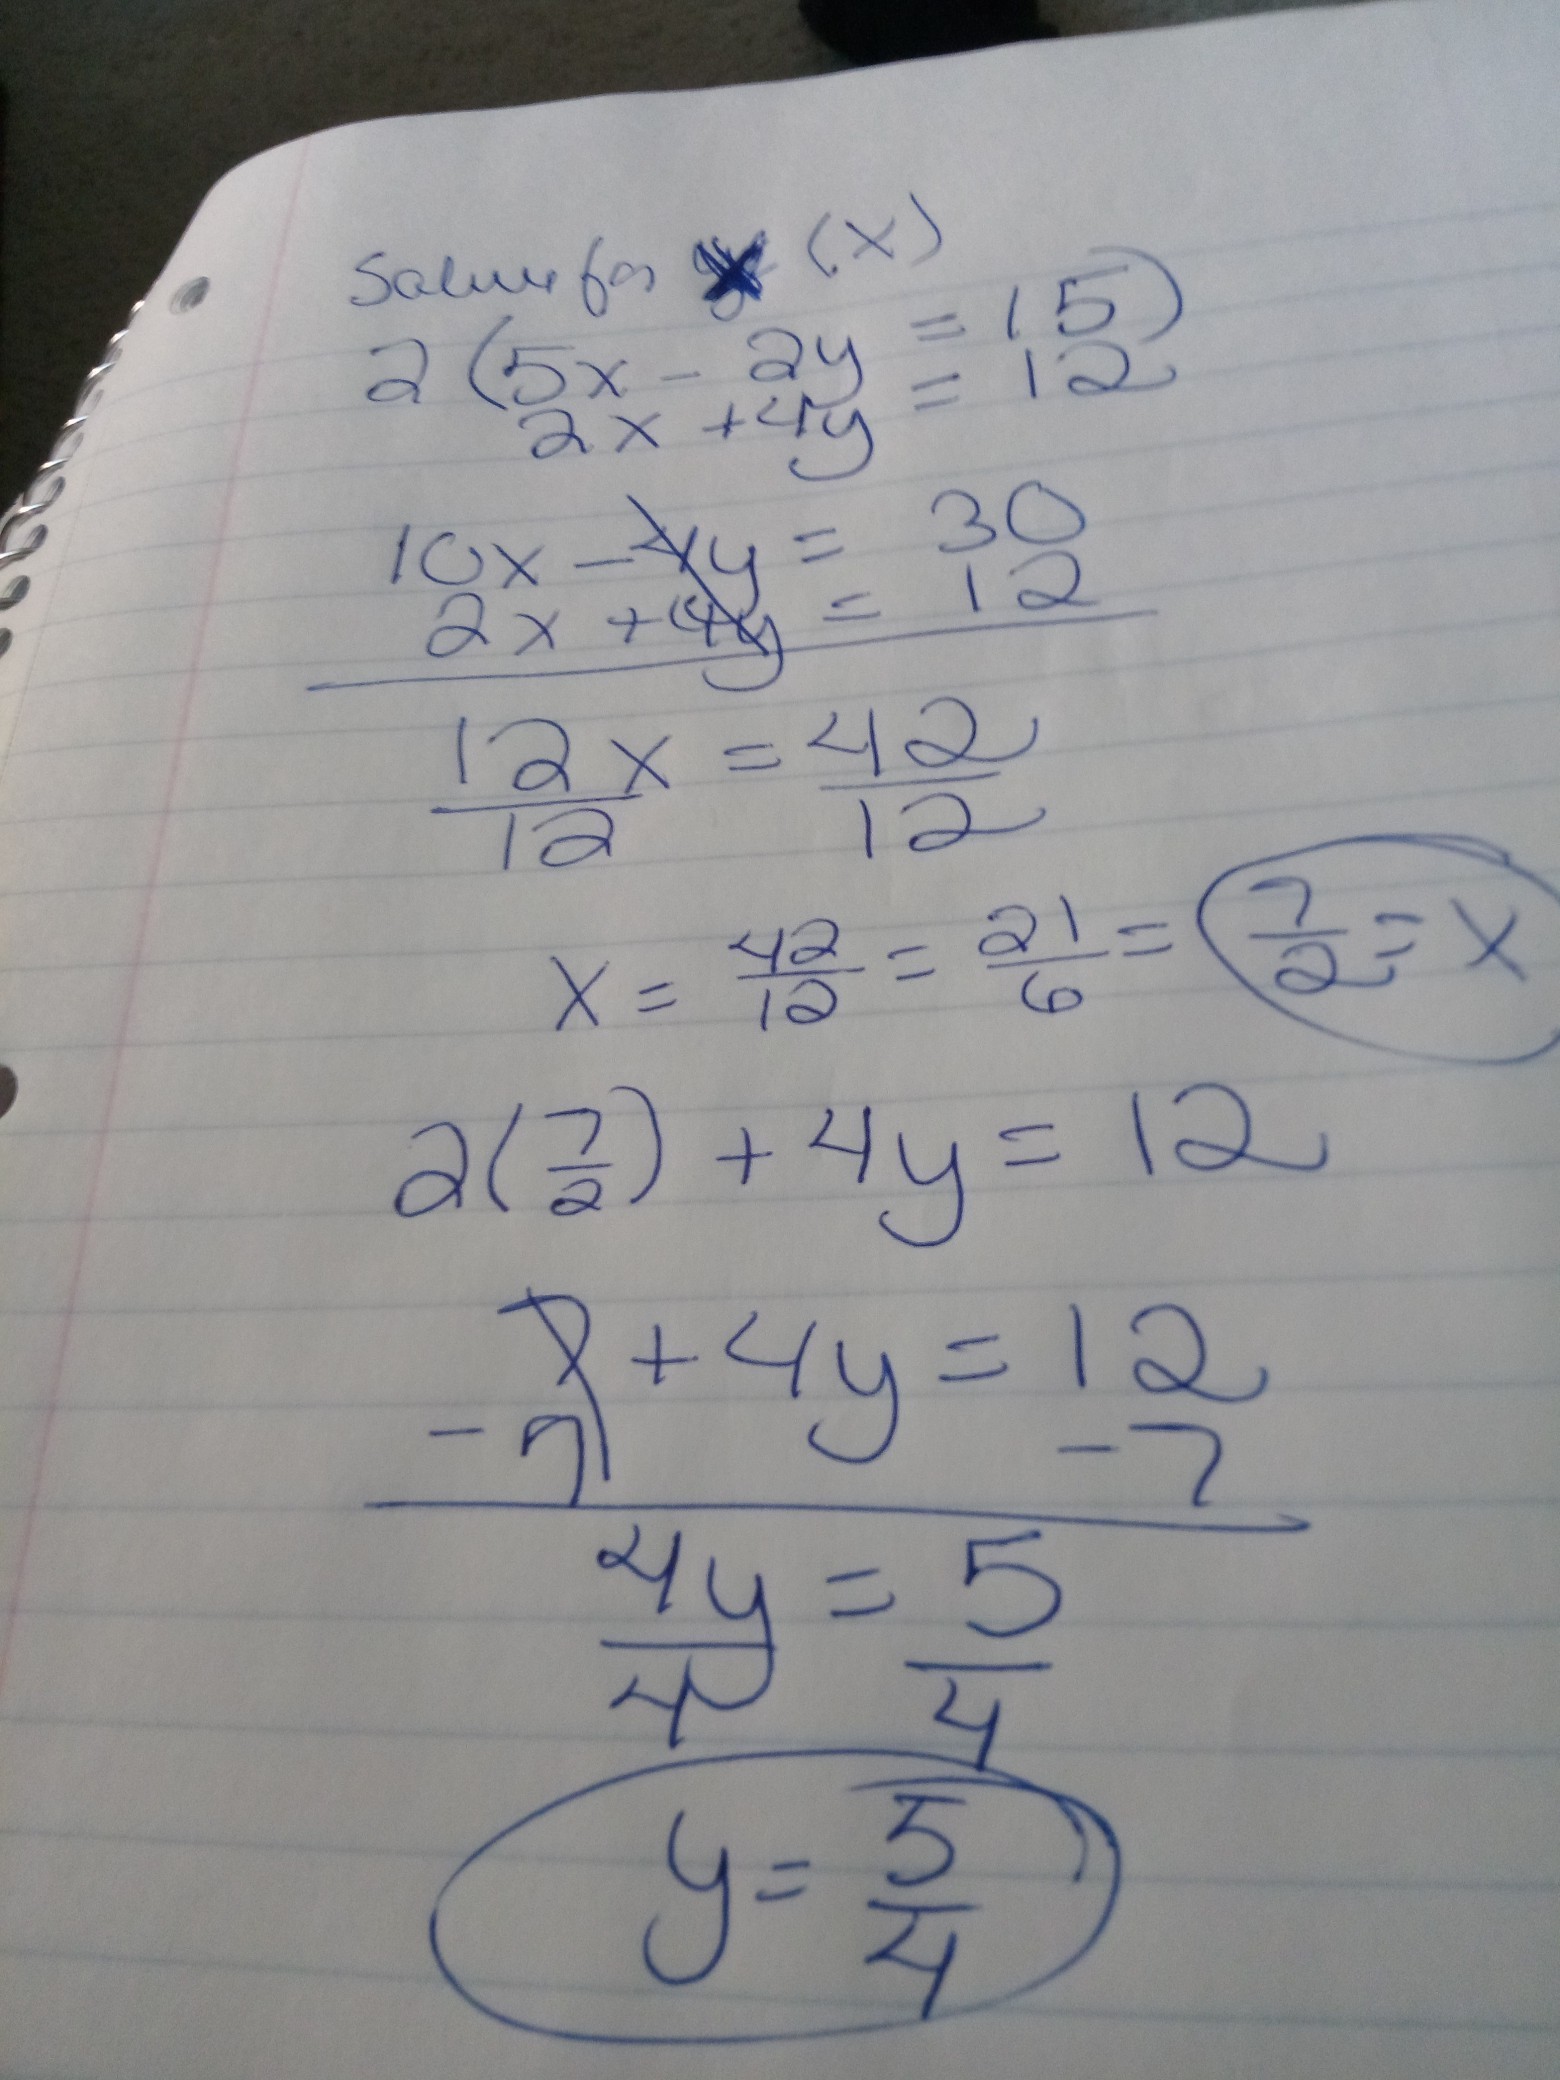 Solve for (x)
2(5x - 2y = 15)
2x + 4y = 12
10x - 4y = 30
2x + 4y = 12
12x = 42
12 12
x = 42/12 = 21/6 = 7/2 = x
2(7/2) + 4y = 12
7 + 4y = 12
-7 -7
4y = 5
4 4
y = 5/4